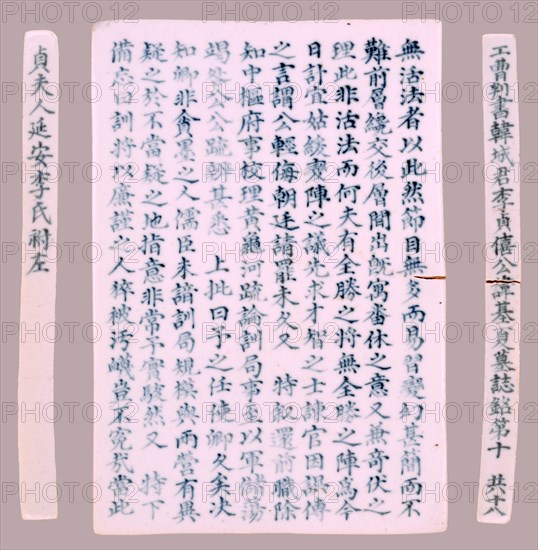 工曹判書韓城君李貞僖公諱基夏墓誌銘第十 共十八
無活法者以此然節目無多而易習變制甚簡而不
難前層繞交後層間出既寓畨休之意又兼奇伏之
理此非活法而何夫有全勝之将無全勝之陣爲今
日計宜姑緩變陣之議先求才智之士諫官因訛傳
之言謂公輕侮朝廷請罷未久又 特叙還前職除
知中樞府事校理黄龜河疏論訓局事至以軍儲蕩
竭咎公公疏辨甚悉 上批曰予之任卿久矣決
知卿非貪墨之人濡臣未諳訓局規模與兩營有異
疑之於不當疑之地指意非常予實駭然又 特下
備忘曰訓將以廉謹之人猝被污衊豈不冤哉當此
貞夫人延安李氏祔左